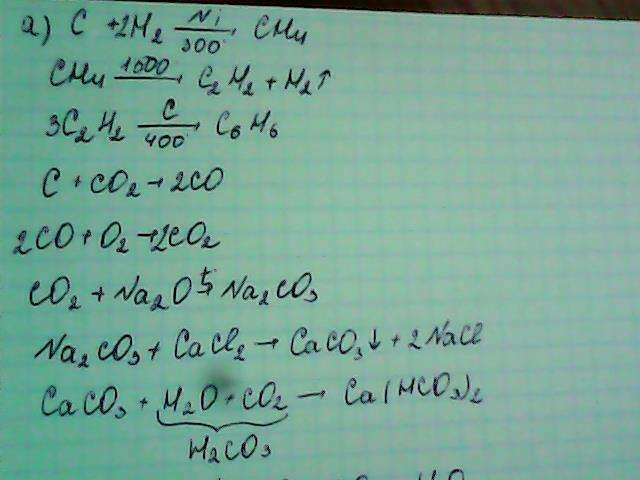 а) C + 2H₂ —Ni/300°→ CH₄
CH₄ —1500→ C₂H₂ + H₂↑
3C₂H₂ —C/400°→ C₆H₆
C + CO₂ → 2CO
2CO + O₂ → 2CO₂
CO₂ + Na₂O —t→ Na₂CO₃
Na₂CO₃ + CaCl₂ → CaCO₃↓ + 2NaCl
CaCO₃ + H₂O + CO₂ → Ca(HCO₃)₂
H₂CO₃